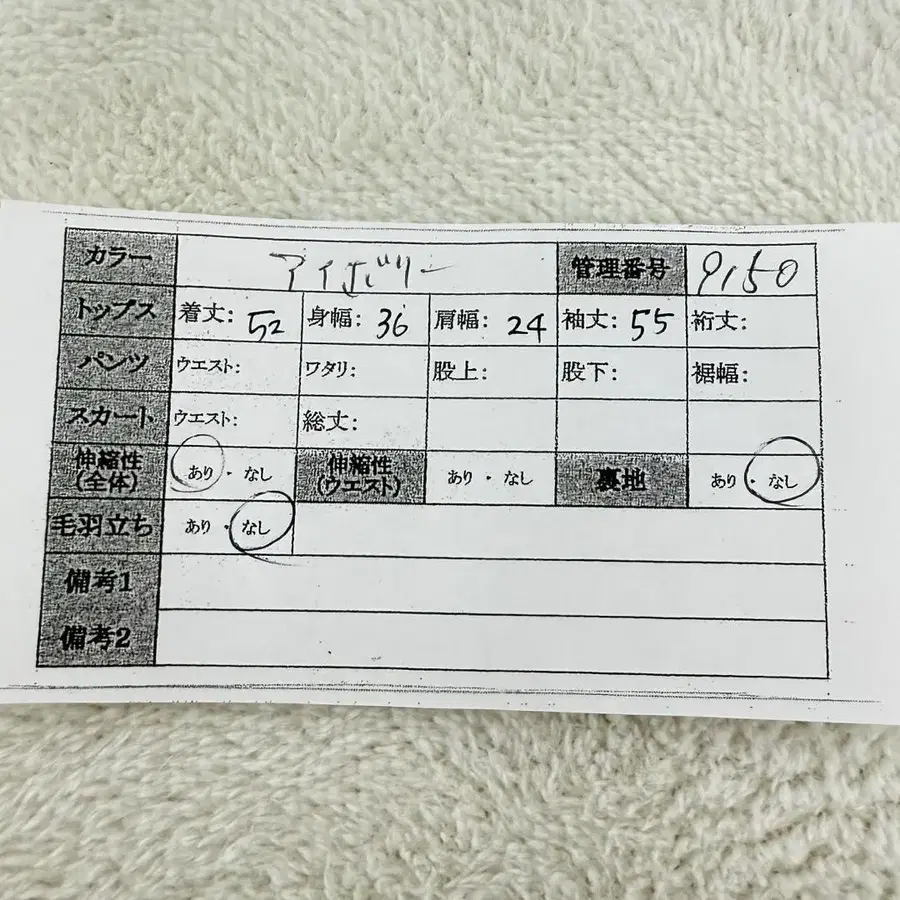 カラー アイボリー 管理番号 9150
トップス 着丈: 52 身幅: 36 肩幅: 24 袖丈: 55 裄丈:
パンツ ウエスト: ワタリ: 股上: 股下: 裾幅:
スカート ウエスト: 総丈:
伸縮性 (全体) あり・なし 伸縮性 (ウエスト) あり・なし 裏地 あり・なし
毛羽立ち あり・なし
備考1
備考2